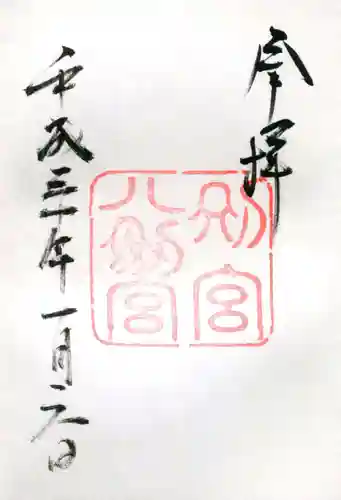 奉拝
別宮
八剱宮
平成三年一月二日